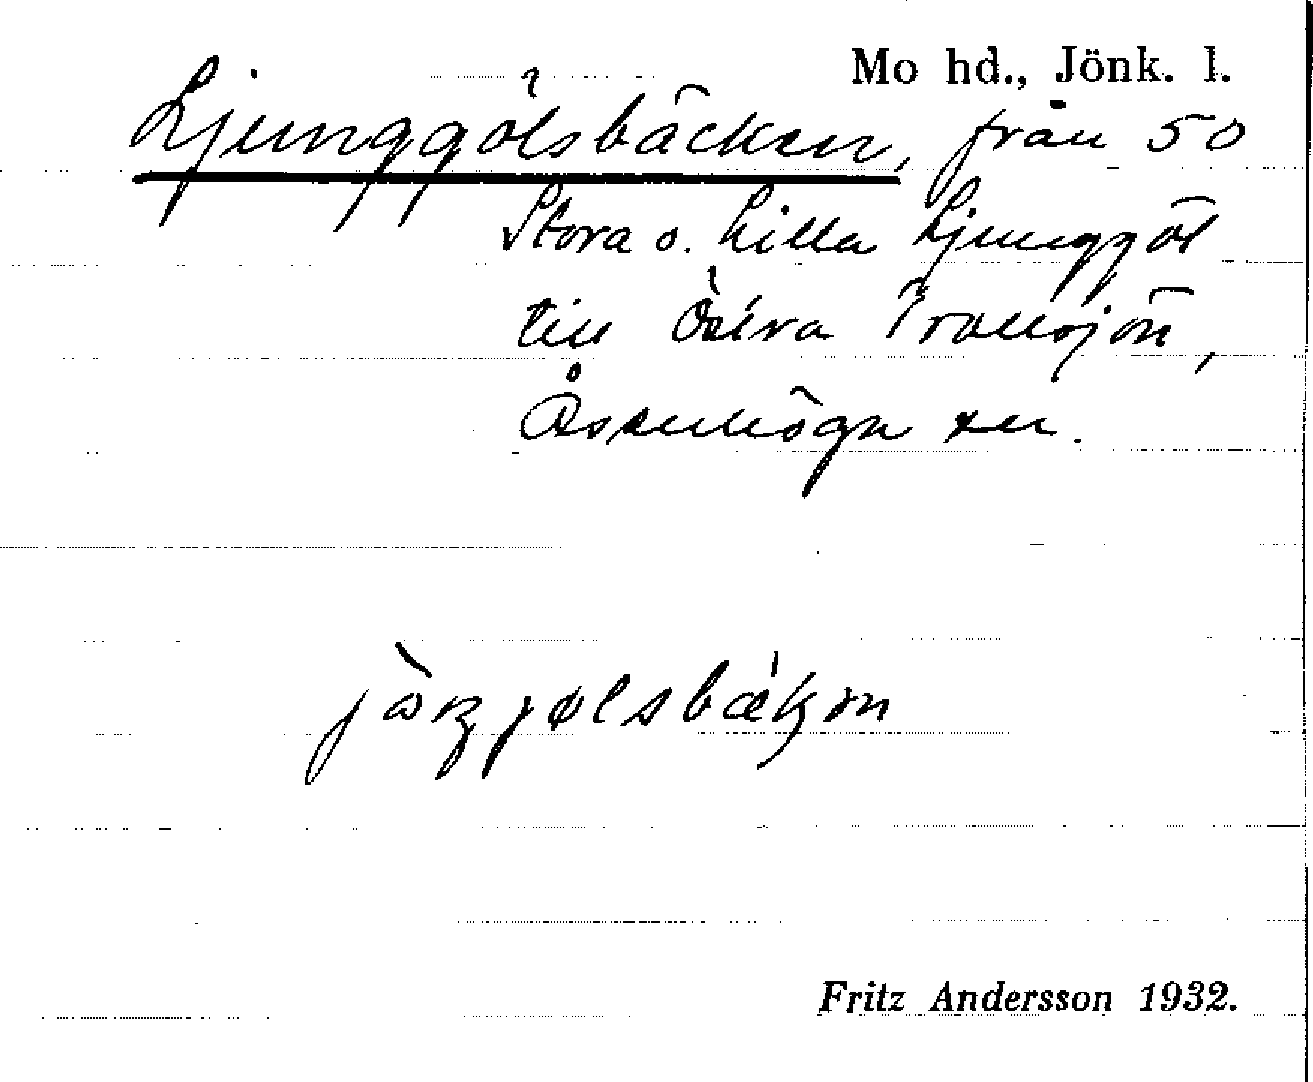 Mo hd., Jönk. l.
Ljunggölsbäcken, från 50
Stora o. Lilla Ljunggöl
till Östra Trollsjön,
Åsenhöga sn.
Fritz Andersson 1932.